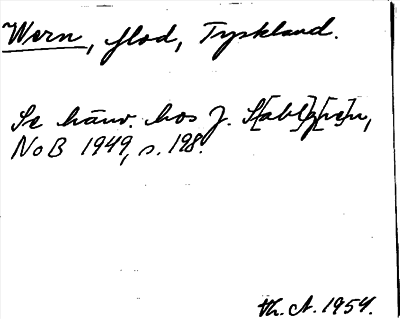 Wern, flod, Tyskland.
Se hänv. hos J. S[ahl]g[re]n,
NoB 1949, s. 198.
Th. A. 1954.